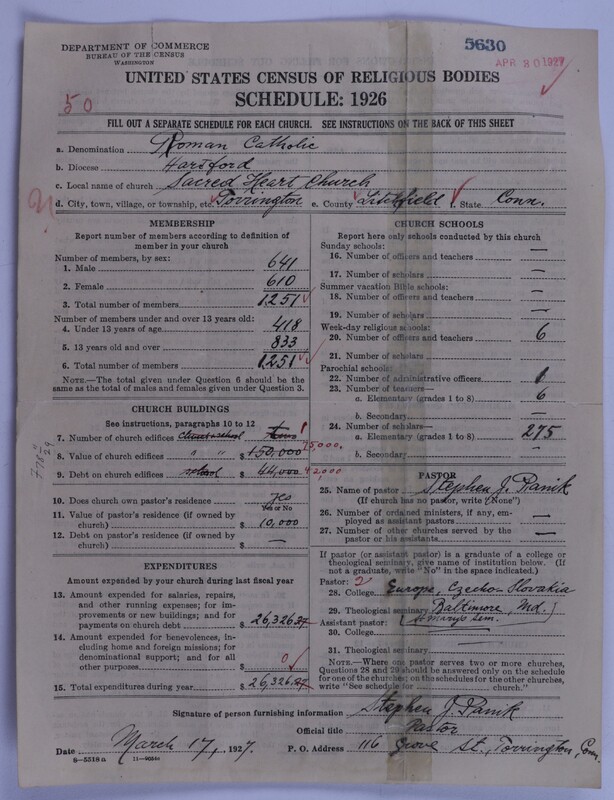 5630
DEPARTMENT OF COMMERCE
BUREAU OF THE CENSUS
WASHINGTON
APR 30 1927
UNITED STATES CENSUS OF RELIGIOUS BODIES
SCHEDULE: 1926
50
FILL OUT A SEPARATE SCHEDULE FOR EACH CHURCH. SEE INSTRUCTIONS ON THE BACK OF THIS SHEET
a. Denomination Roman Catholic
b. Diocese Hartford
c. Local name of church Sacred Heart Church
d. City, town, village, or township, etc. Torrington e. County Litchfield f. State Conn.
MEMBERSHIP
Report number of members according to definition of
member in your church
Number of members, by sex:
1. Male 641
2. Female 610
3. Total number of members 1251
Number of members under and over 13 years old:
4. Under 13 years of age 418
5. 13 years old and over 833
6. Total number of members 1251
NOTE.—The total given under Question 6 should be the
same as the total of males and females given under Question 3.
CHURCH BUILDINGS
See instructions, paragraphs 10 to 12
7. Number of church edifices 1
8. Value of church edifices " " $ 150,000
9. Debt on church edifices school $ 44,000 42,000
10. Does church own pastor's residence yes
Yes or No
11. Value of pastor's residence (if owned by
church) $ 10,000
12. Debt on pastor's residence (if owned by
church) $ —
EXPENDITURES
Amount expended by your church during last fiscal year
13. Amount expended for salaries, repairs,
and other running expenses; for im-
provements or new buildings; and for
payments on church debt $ 26,326.27
14. Amount expended for benevolences,
including home and foreign missions; for
denominational support; and for all
other purposes $ 0
15. Total expenditures during year $ 26,326.27
CHURCH SCHOOLS
Report here only schools conducted by this church
Sunday schools:
16. Number of officers and teachers —
17. Number of scholars —
Summer vacation Bible schools:
18. Number of officers and teachers —
19. Number of scholars —
Week-day religious schools:
20. Number of officers and teachers 6
21. Number of scholars —
Parochial schools:
22. Number of administrative officers 1
23. Number of teachers—
a. Elementary (grades 1 to 8) 6
b. Secondary —
24. Number of scholars—
a. Elementary (grades 1 to 8) 275
b. Secondary —
PASTOR
25. Name of pastor Stephen J. Panik
(If church has no pastor, write "None")
26. Number of ordained ministers, if any, em-
ployed as assistant pastors —
27. Number of other churches served by the
pastor or his assistants —
If pastor (or assistant pastor) is a graduate of a college or
theological seminary, give name of institution below. (If
not a graduate, write "No" in the space indicated.)
Pastor: 2
28. College Europe, Czecho-Slovakia
29. Theological seminary Baltimore, Md.
Assistant pastor: (St. Mary's Sem.)
30. College
31. Theological seminary —
NOTE.—Where one pastor serves two or more churches,
Questions 28 and 29 should be answered only on the schedule
for one of the churches; on the schedules for the other churches,
write "See schedule for church."
Signature of person furnishing information Stephen J. Panik
Official title Pastor
Date March 17, 1927. P. O. Address 116 Grove St., Torrington, Conn.
8-5318a 11-9651